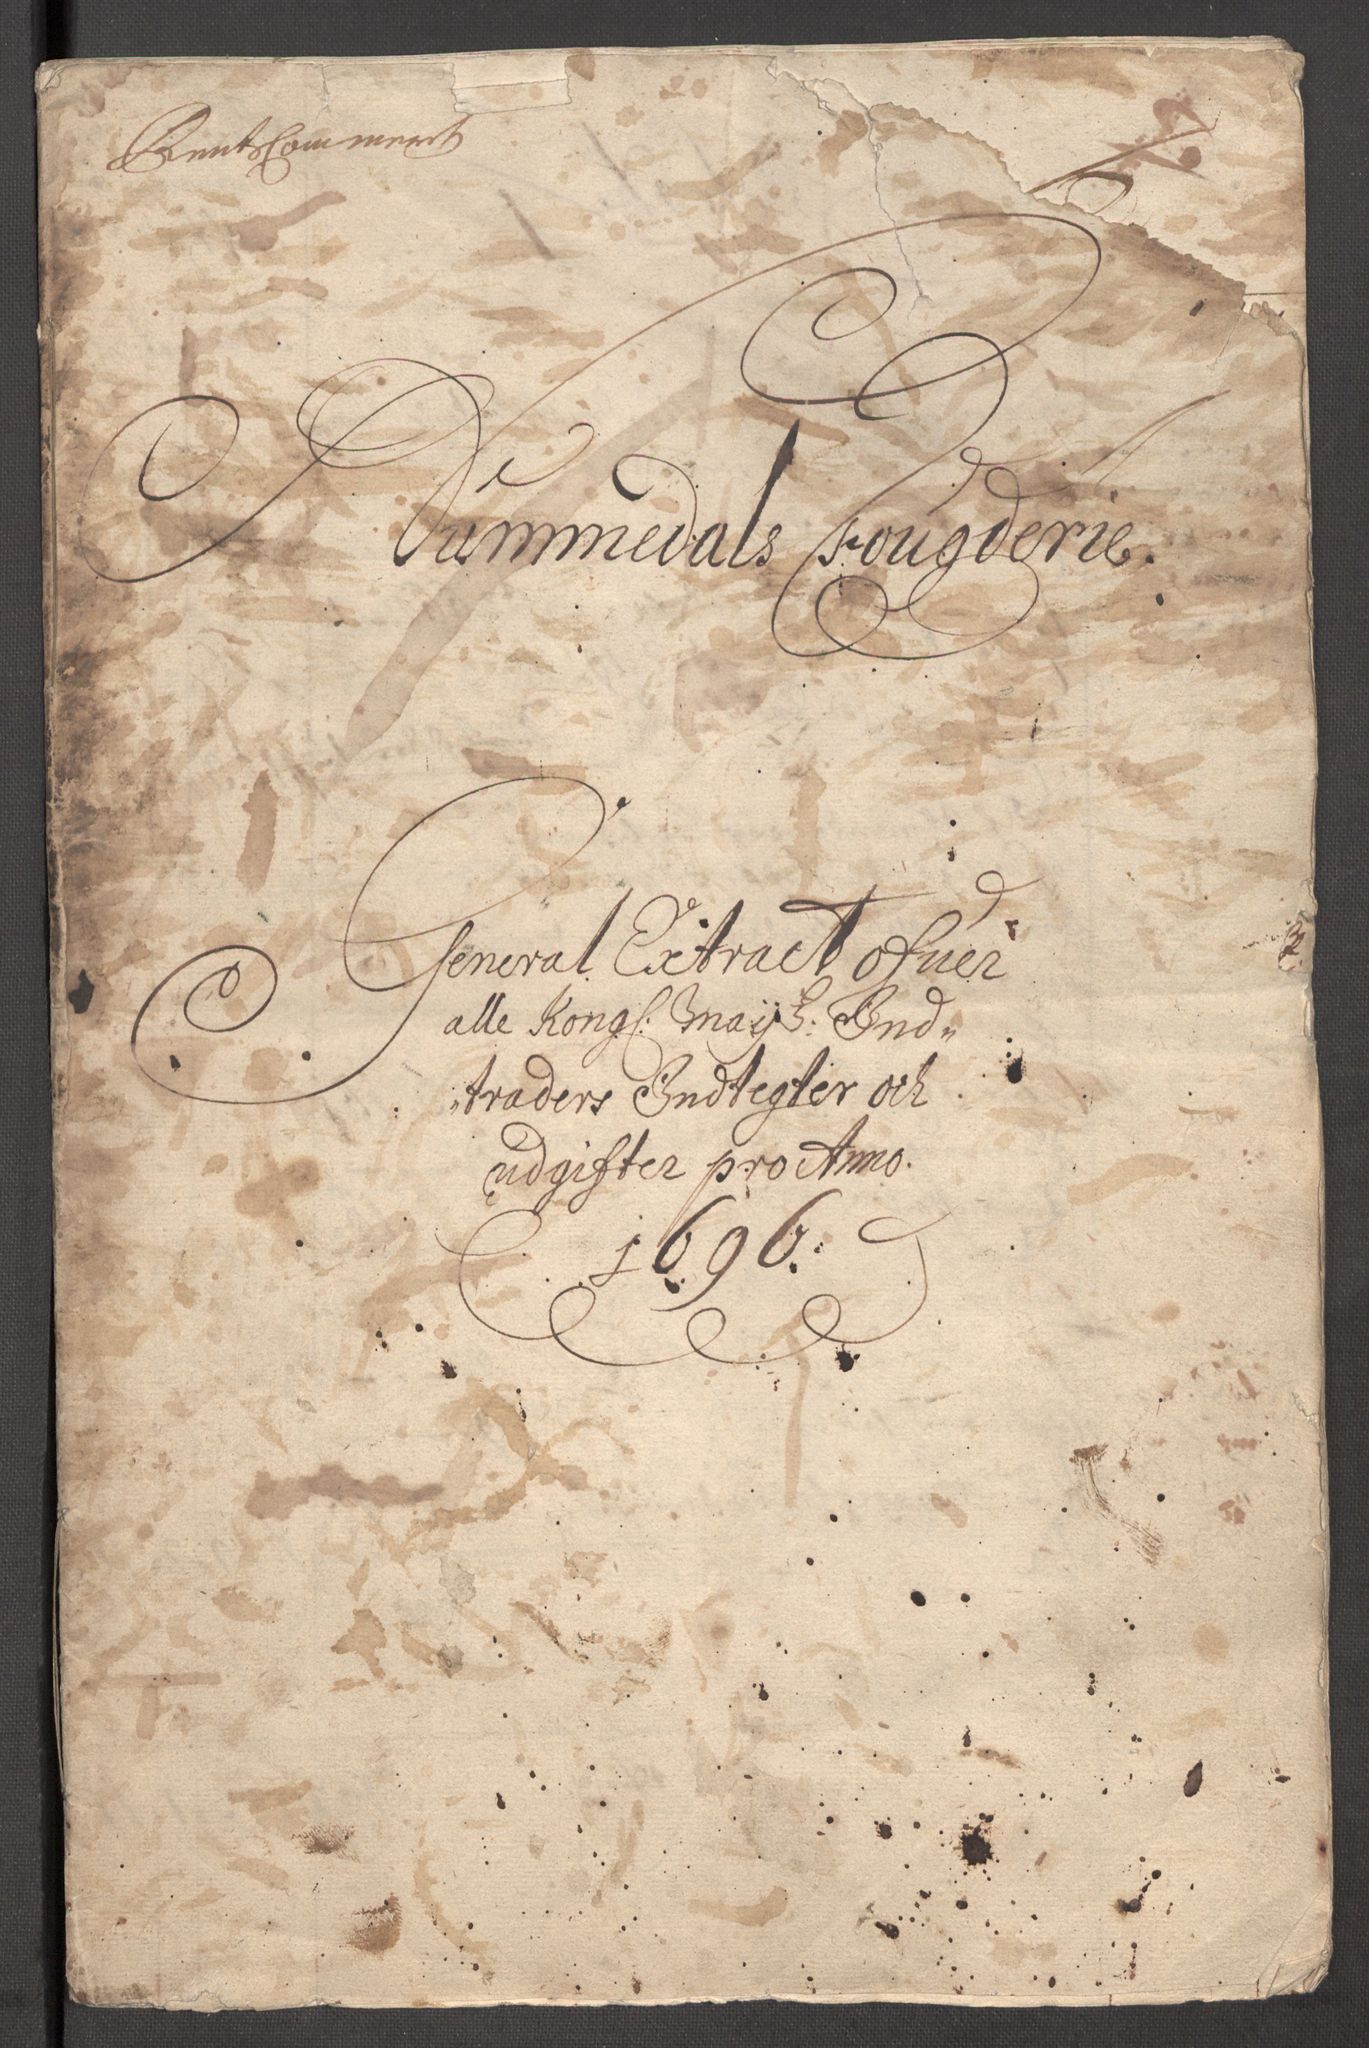 RentzCommeret
Nummedals Fougderie.
General Extract ofuer
alle Kongl. Mayts: Ind„
„traders Indtegter och
udgifter pro Anno.
1696.